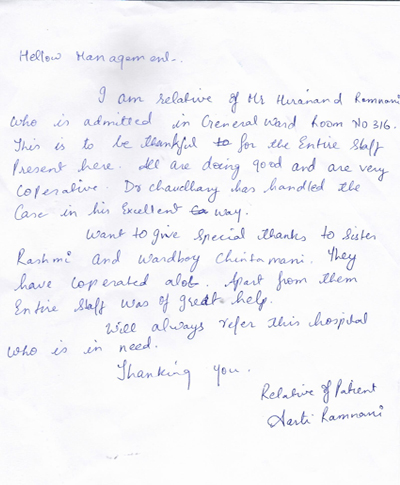 Hellow Management..
I am relative of Mr Hiranand Ramnani
who is admitted in General Ward Room No 316.
This is to be thankful to for the Entire Staff
Present here. All are doing good and are very
Coperative. Dr Chaudhary has handled the
Case in his Excellent way.
Want to give special thanks to Sister
Rashmi and Wardboy Chintamani. They
have coperated alot. Apart from them
Entire Staff was of great help.
Will always refer this hospital
who is in need.
Thanking you.
Relative of Patient
Aarti Ramnani